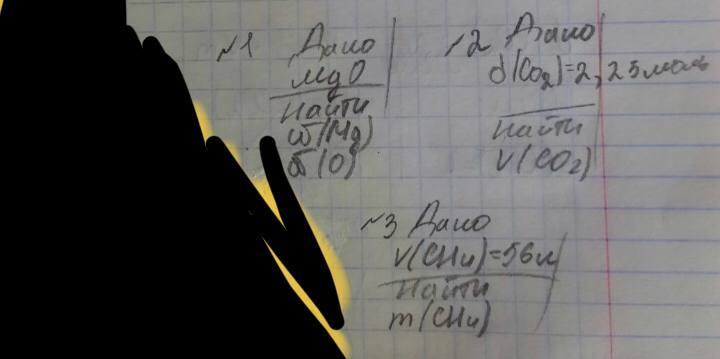 №1 Дано
MgO
Найти
ω(Mg)
ω(O)
№2 Дано
d(CO2)=2,25моль
Найти
V(CO2)
№3 Дано
V(CH4)=56л
Найти
m(CH4)